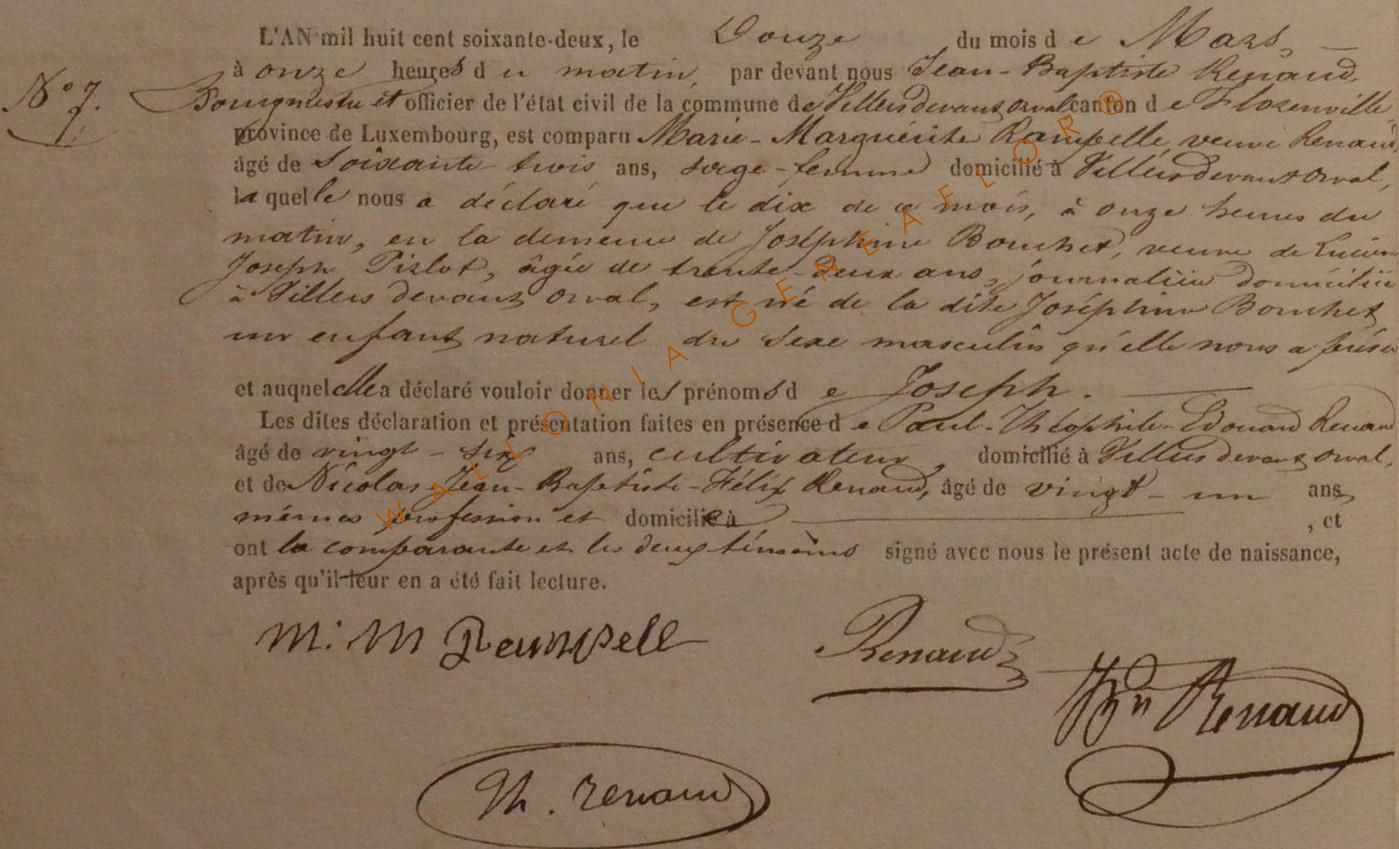 L'AN mil huit cent soixante-deux, le Douze du mois de Mars,
à onze heures du matin, par devant nous Jean-Baptiste Renaud
N° 7. Bourgmestre et officier de l'état civil de la commune de Villers devant orval canton de Florenville,
province de Luxembourg, est comparu Marie-Marguérite Rampelle, veuve Renaud,
âgé de soixante trois ans, sage-femme domicilié à Villers devant orval,
laquelle nous a déclaré que le dix de ce mois, à onze heures du
matin, en la demeure de Joséphine Bouchet, veuve de Lucien
Joseph Pirlot, âgée de trente-deux ans, journalière domiciliée
à Villers devant orval, est né de la dite Joséphine Bouchet
un enfant naturel du sexe masculin qu'elle nous a
et auquel elle a déclaré vouloir donner les prénoms de Joseph.
Les dites déclaration et présentation faites en présence de Paul-Théophile-Edouard Renaud
âgé de vingt-six ans, cultivateur, domicilié à Villers devant orval,
et de Nicolas-Jean-Baptiste-Félix Renaud, âgé de vingt-un ans,
mêmes profession et domicilié à , et
ont la comparante et les deux témoins signé avec nous le présent acte de naissance,
après qu'il leur en a été fait lecture.
M: M Rempell
Renaud
Renaud
Th. renaud
WALLONIA-GENEAFLOR®